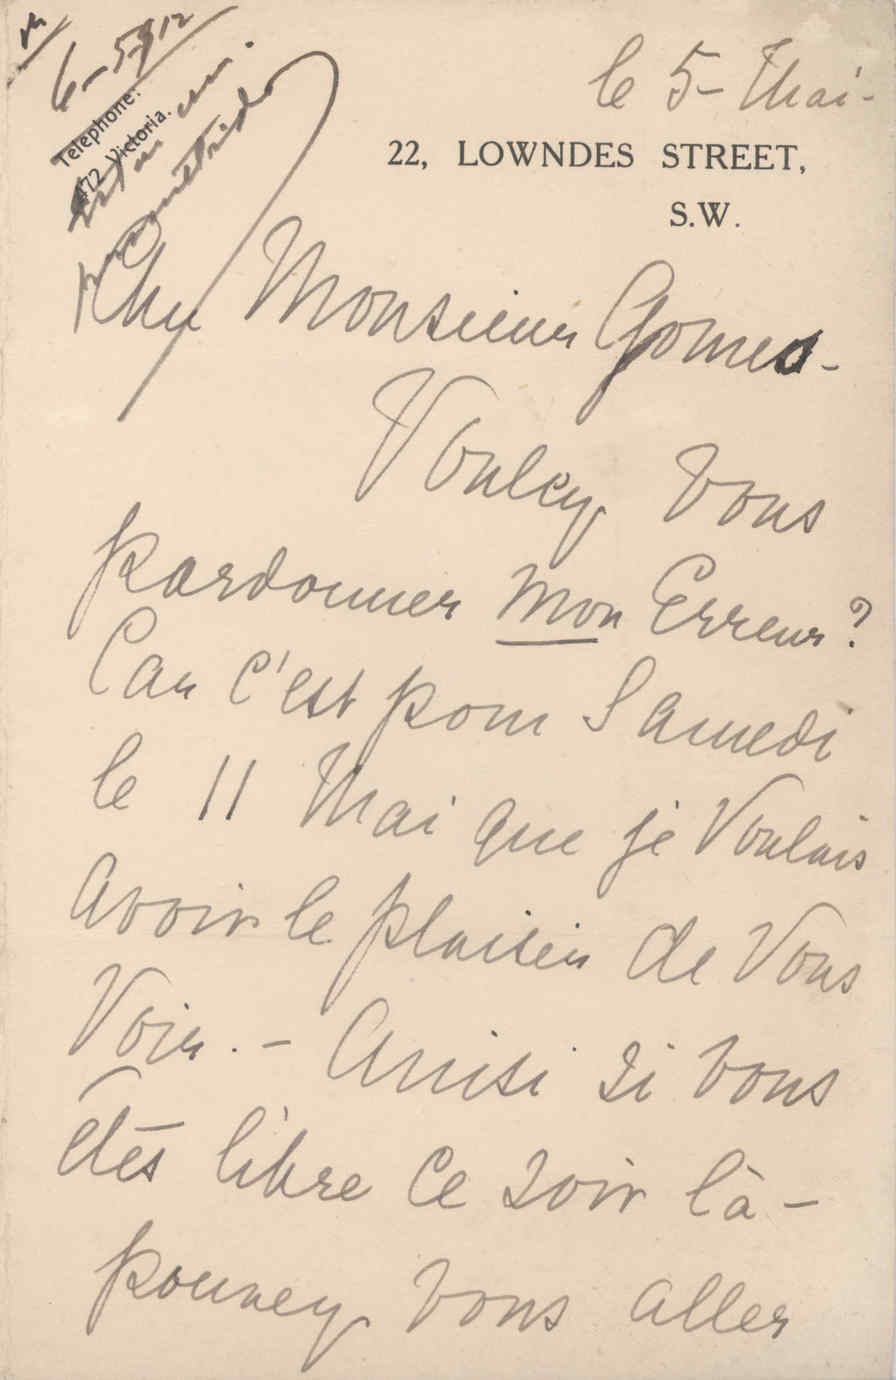 6-5-912
Telephone:
472 Victoria.
le 5- Mai-
22, LOWNDES STREET,
S.W.
Cher Monsieur Gomes-
Vouley Vous
pardonner mon Erreur?
Car c'est pour Samedi
le 11 Mai que je Voulais
avoir le plaisir de Vous
Voir. - Ainsi si vous
êtes libre ce soir là-
pouvey vous aller